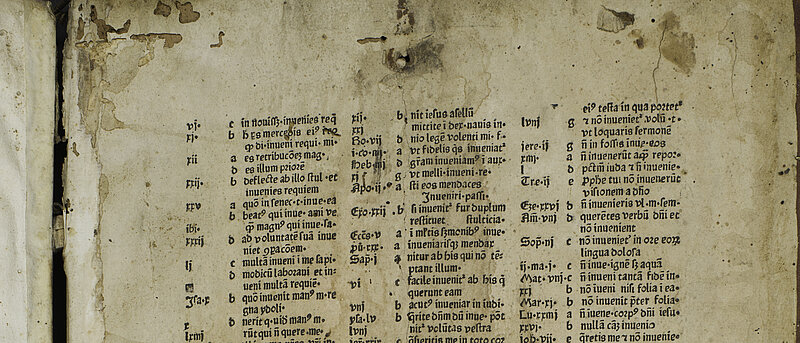 vj. c in nouiss. inuenies req
xj. b h es mercedis ei⁹
q di. inueni requi. mi.
xij a es retribucoēz mag.
d es illum priorē
xxij. b deflecte ab illo stul. et
inuenies requiem
xxv a quō in senec. t. inue. ea
b beat⁹ qui inue. ami ve
ibj. q̄ magn⁹ qui inue. sa.
xxxij d ad voluntatē suā inue
niet ꝯpacōem.
lj c multā inueni i me sapi.
d modicū laboraui et in
ueni multā requiē.
Jsa. x b quō inuenit man⁹ m. re
gna ydoli.
x d nerit q. uid man⁹ m.
lxmj rūt qui n̄ quere. me.
xij. b nit iesus asellū
xxj mittite i dex. nauis in.
Ro. vij d nio legē volenti mi. f.
i. co. iiij a vt fidelis q̄s inueniat
Heb. iiij d grām inueniam⁹ i aux.
xj f vt melli. inueni. re.
Apo. ij a sti eos mendaces
Jnueniri. passi.
Exo. xxij. b si inuenit⁹ fur duplum
restituet stulticia.
Eccs. v a i mētis sermonib⁹ inue.
pū. xxx. a inueniarisq̨ mendax
Sap. j a nitur ab his qui nō tē
ptant illum.
vi c facile inuenit⁹ ab his q̄
querunt eam
vnj b acut⁹ inueniar in iudi.
ysa. lv b q̄rite dn̄m dū inue. pōt
lvnj nit⁹ volūtas vestra
ei⁹ testa in qua portet⁹
lvnj g ⁊ nō inueniet⁹ volū. t.
vt loquaris sermonē
iere. ij g n̄ in fossis inue. eos
xmj. a n̄ inuenerūt aq̄ repor.
l d pctm̄ iuda ⁊ n̄ inuenie.
Tre. ij e ꝓphe tui nō inuenerūt
visionem a dn̄o
Eze. xxvj b n̄ inuenieris vl. m. sem.
Am. vnj d querētes verbū dn̄i et
nō inuenient
Sop. nj c nō inueniet⁹ in ore eorꝝ
lingua dolosa
ij. ma. j. c n̄ inue. ignē sꝫ aquā
Mat. vnj. c n̄ inueni tantā fidē in.
xxj b nō iueni nisi folia i ea.
Mar. xj. b nō inuenit p̄ter folia.
Lu. xxmj a n̄ iuene. corp⁹ dn̄i iesu.
xxvj. b nullā cāꝫ inuenio
ioh. vij e q̄retis me ⁊ nō inuenie.